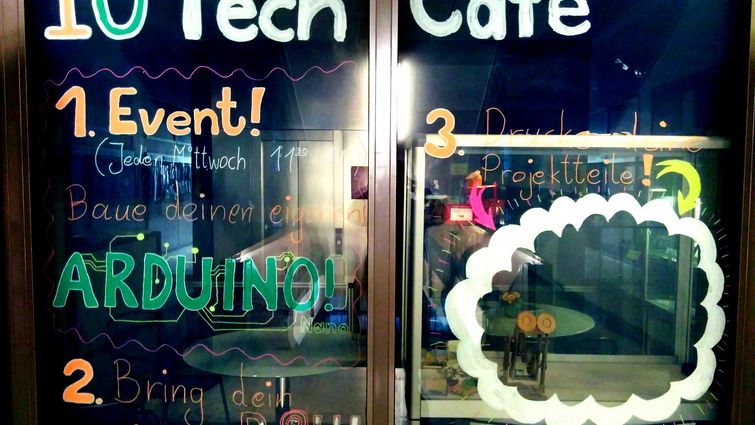 10 Tech Café
1. Event!
(Jeden Mittwoch 11³⁰
Baue deinen eigenen
ARDUINO!
Nano
2. Bring dein
3. Drucke deine
Projektteile!